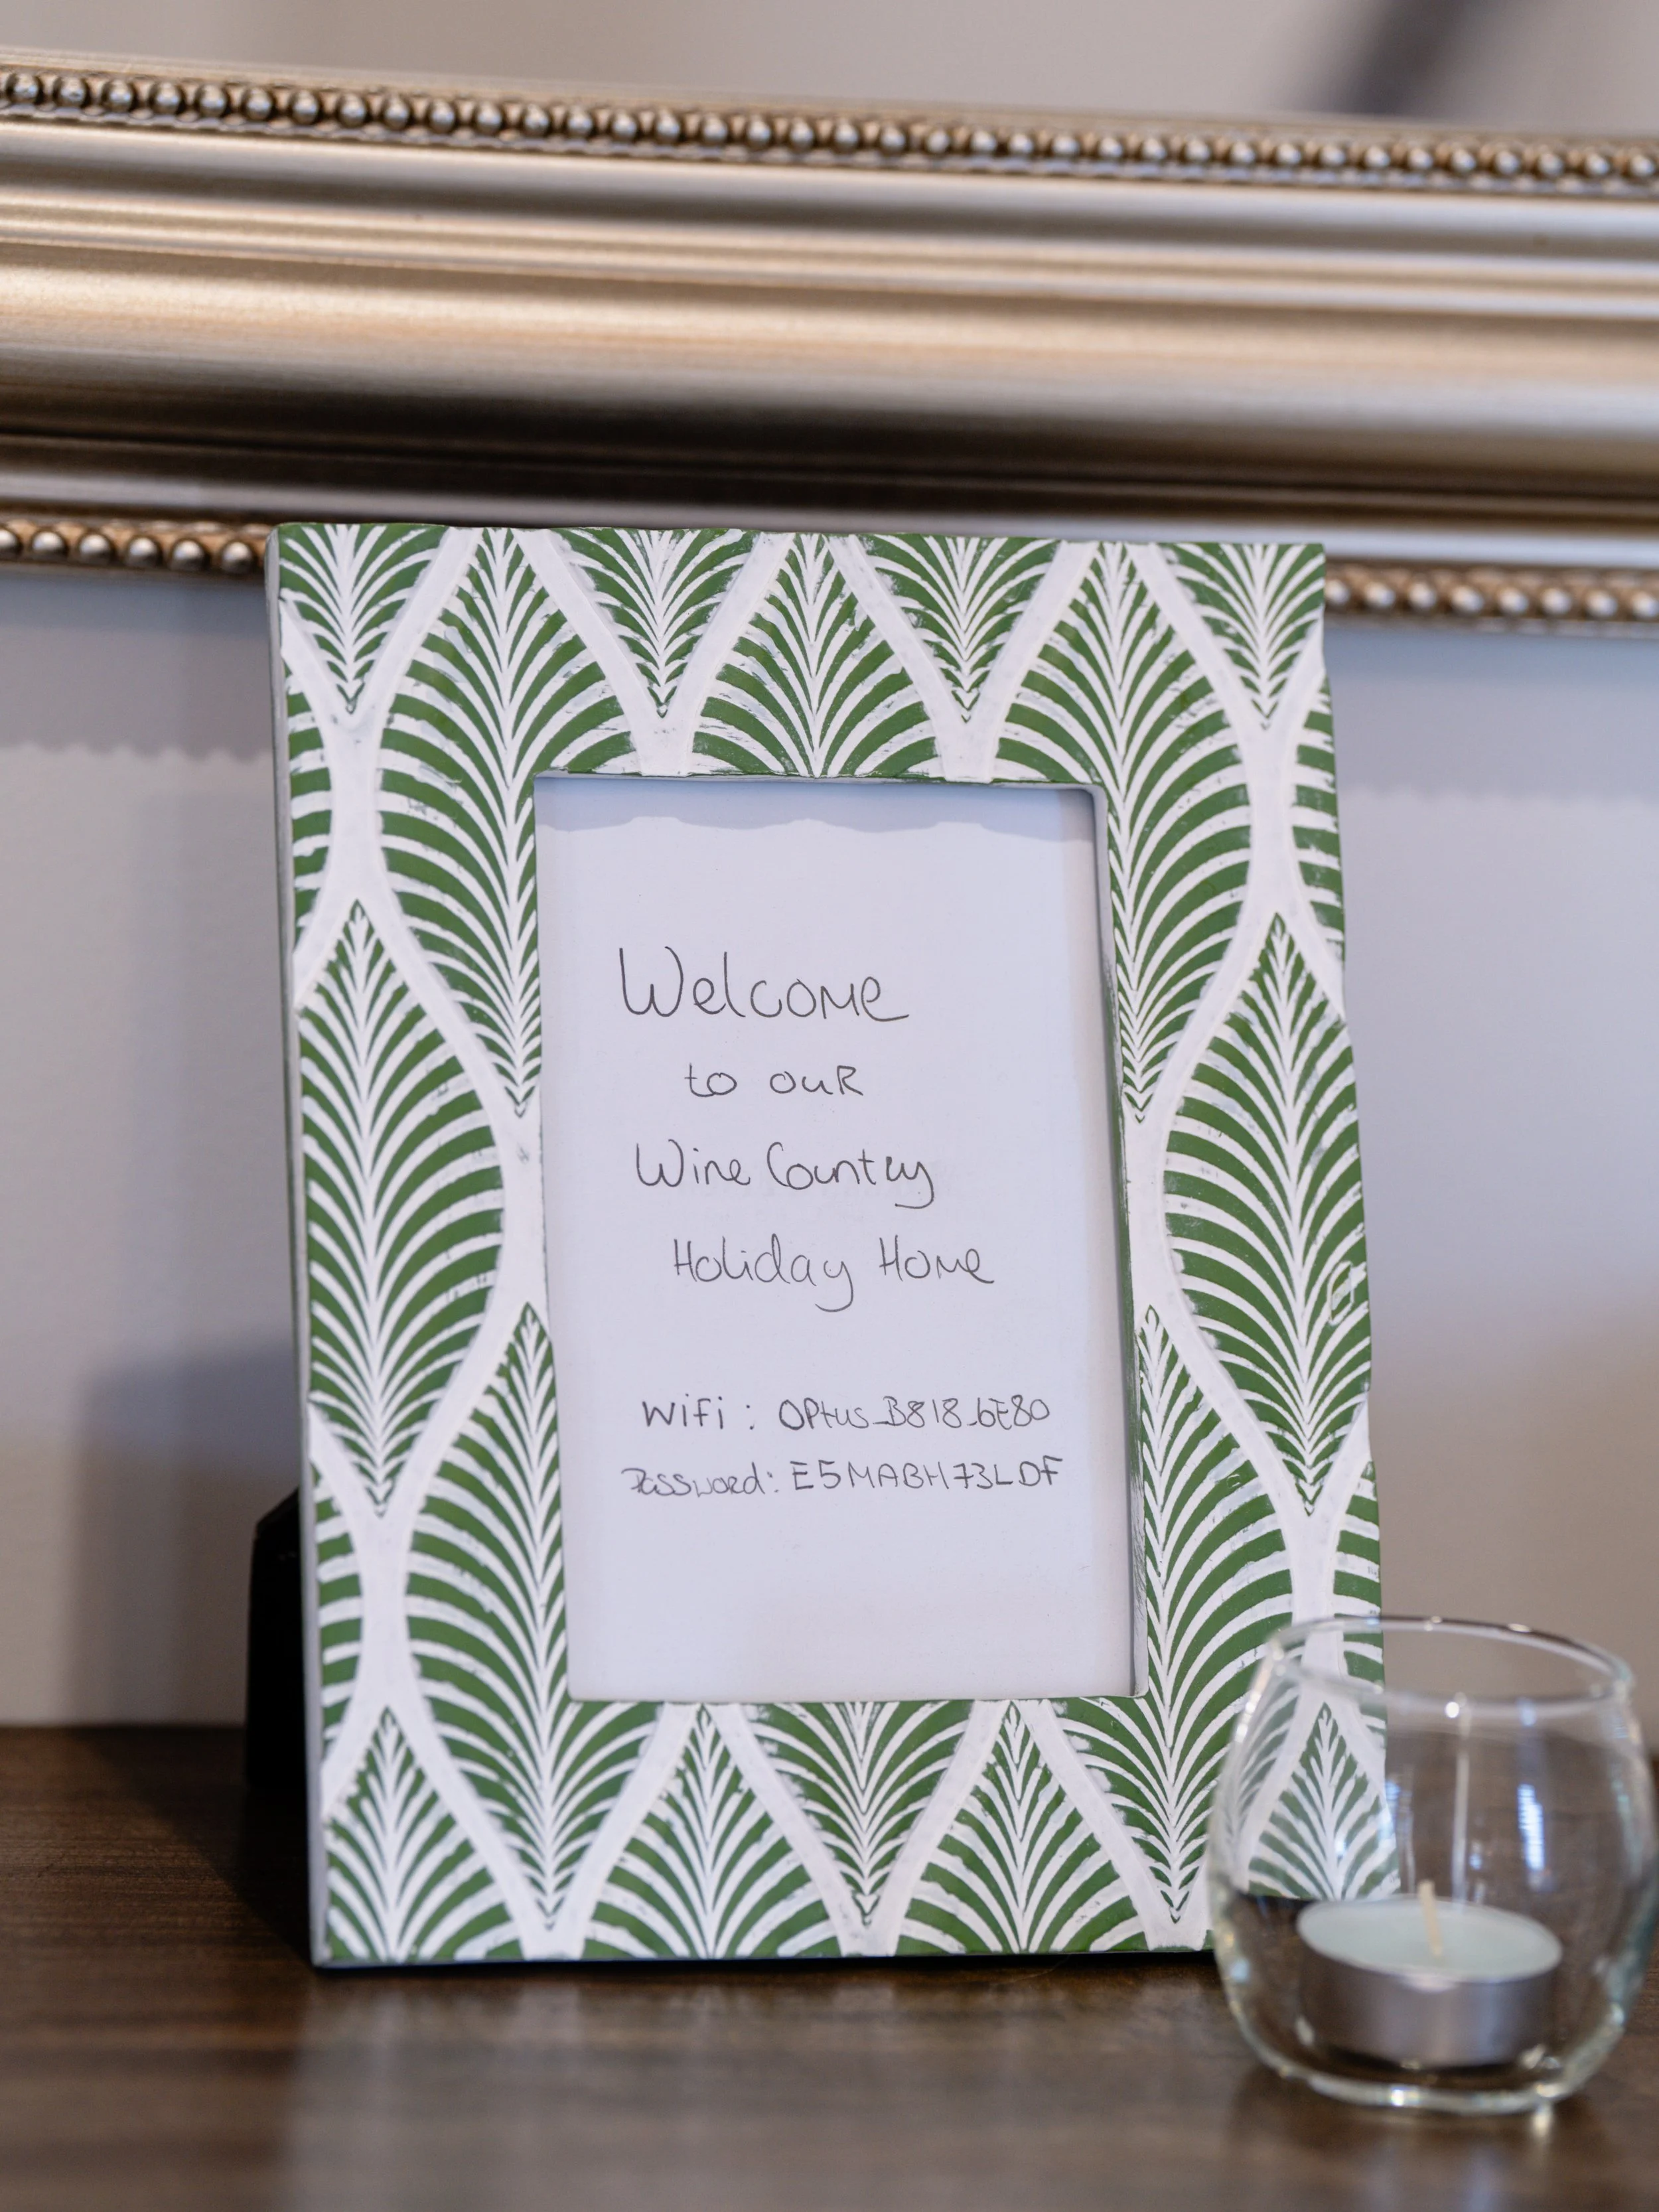 Welcome
to our
Wine Country
Holiday Home
WiFi: OPtus_B818_6E80
Password: E5MABH73LDF